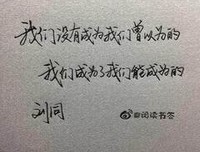 我们没有成为我们曾以为的
我们成为了我们能成为的
刘同
@阅读书签